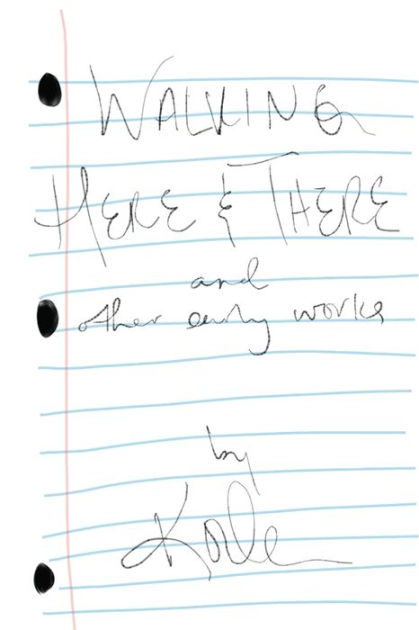 WALKING
HERE & THERE
and
other early works
by